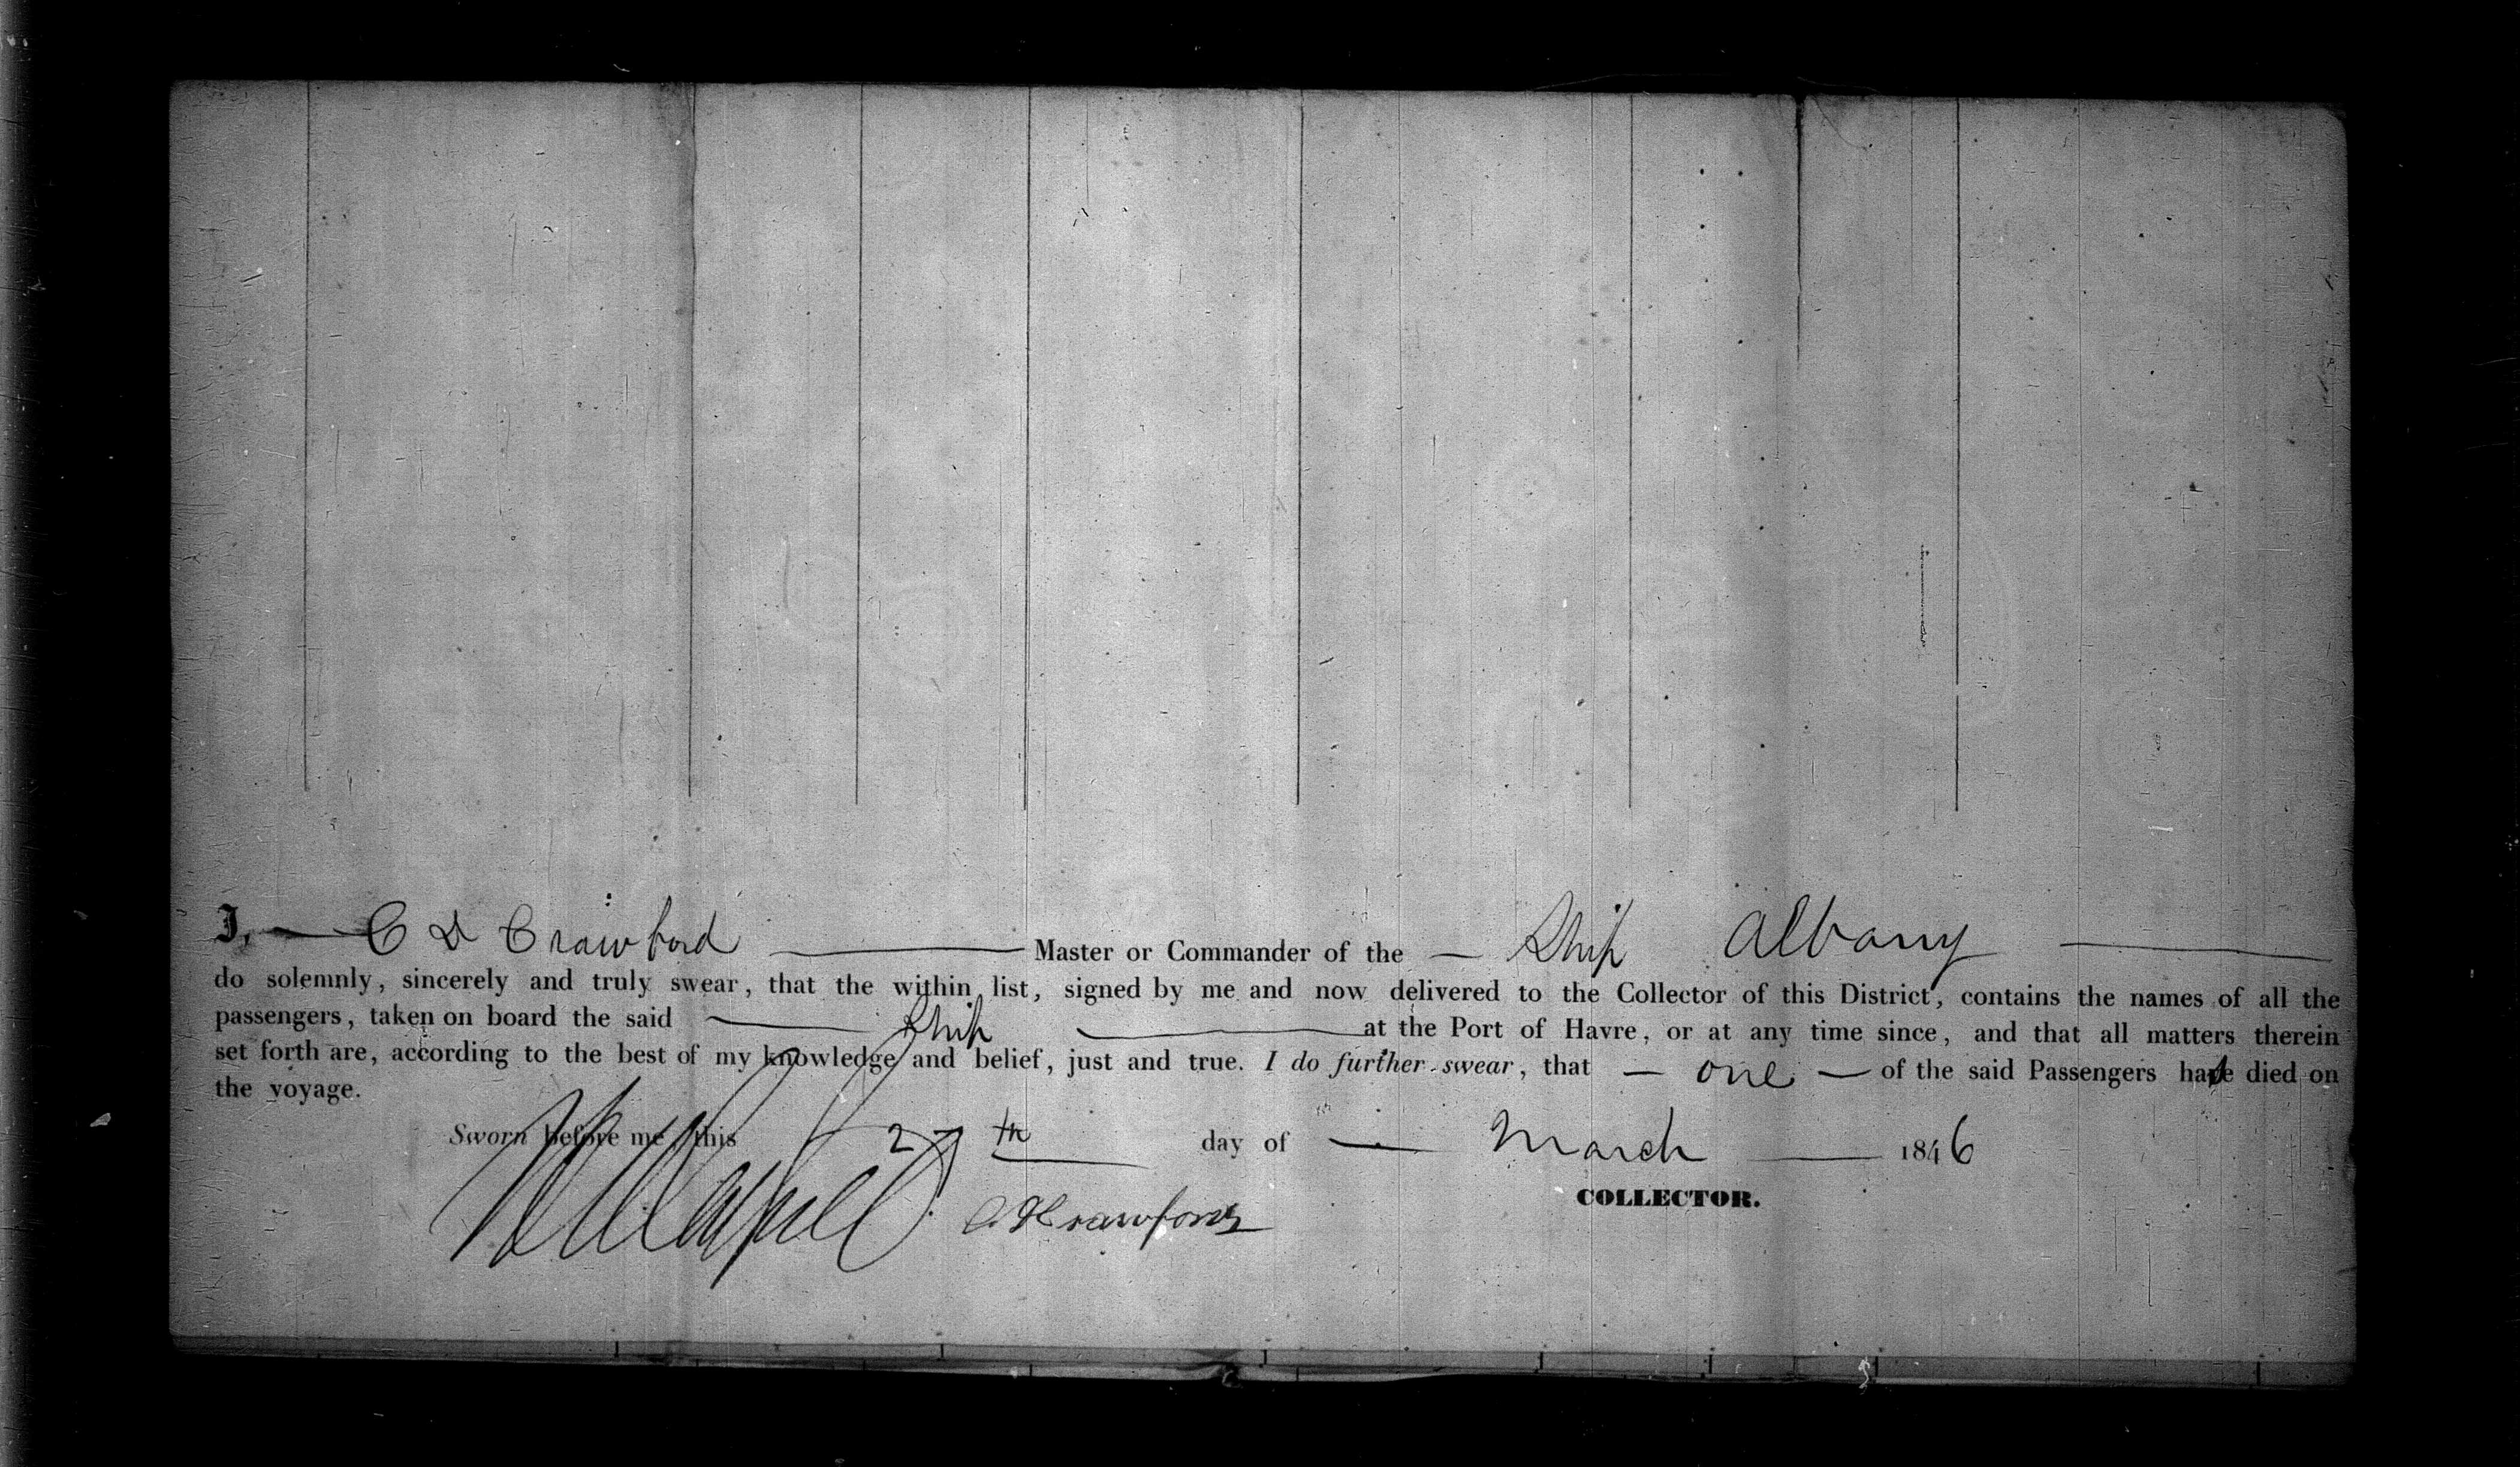 I, — C D Crawford — Master or Commander of the — Ship Albany —
do solemnly, sincerely and truly swear, that the within list, signed by me and now delivered to the Collector of this District, contains the names of all the
passengers, taken on board the said — Ship — at the Port of Havre, or at any time since, and that all matters therein
set forth are, according to the best of my knowledge and belief, just and true. I do further swear, that — one — of the said Passengers has died on
the voyage.
Sworn before me, this 27th day of — March — 1846
COLLECTOR.
Crawford